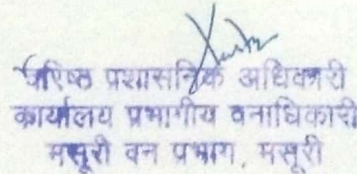 वरिष्ठ प्रशासनिक अधिकारी
कार्यालय प्रभागीय वनाधिकारी
मसूरी वन प्रभाग, मसूरी